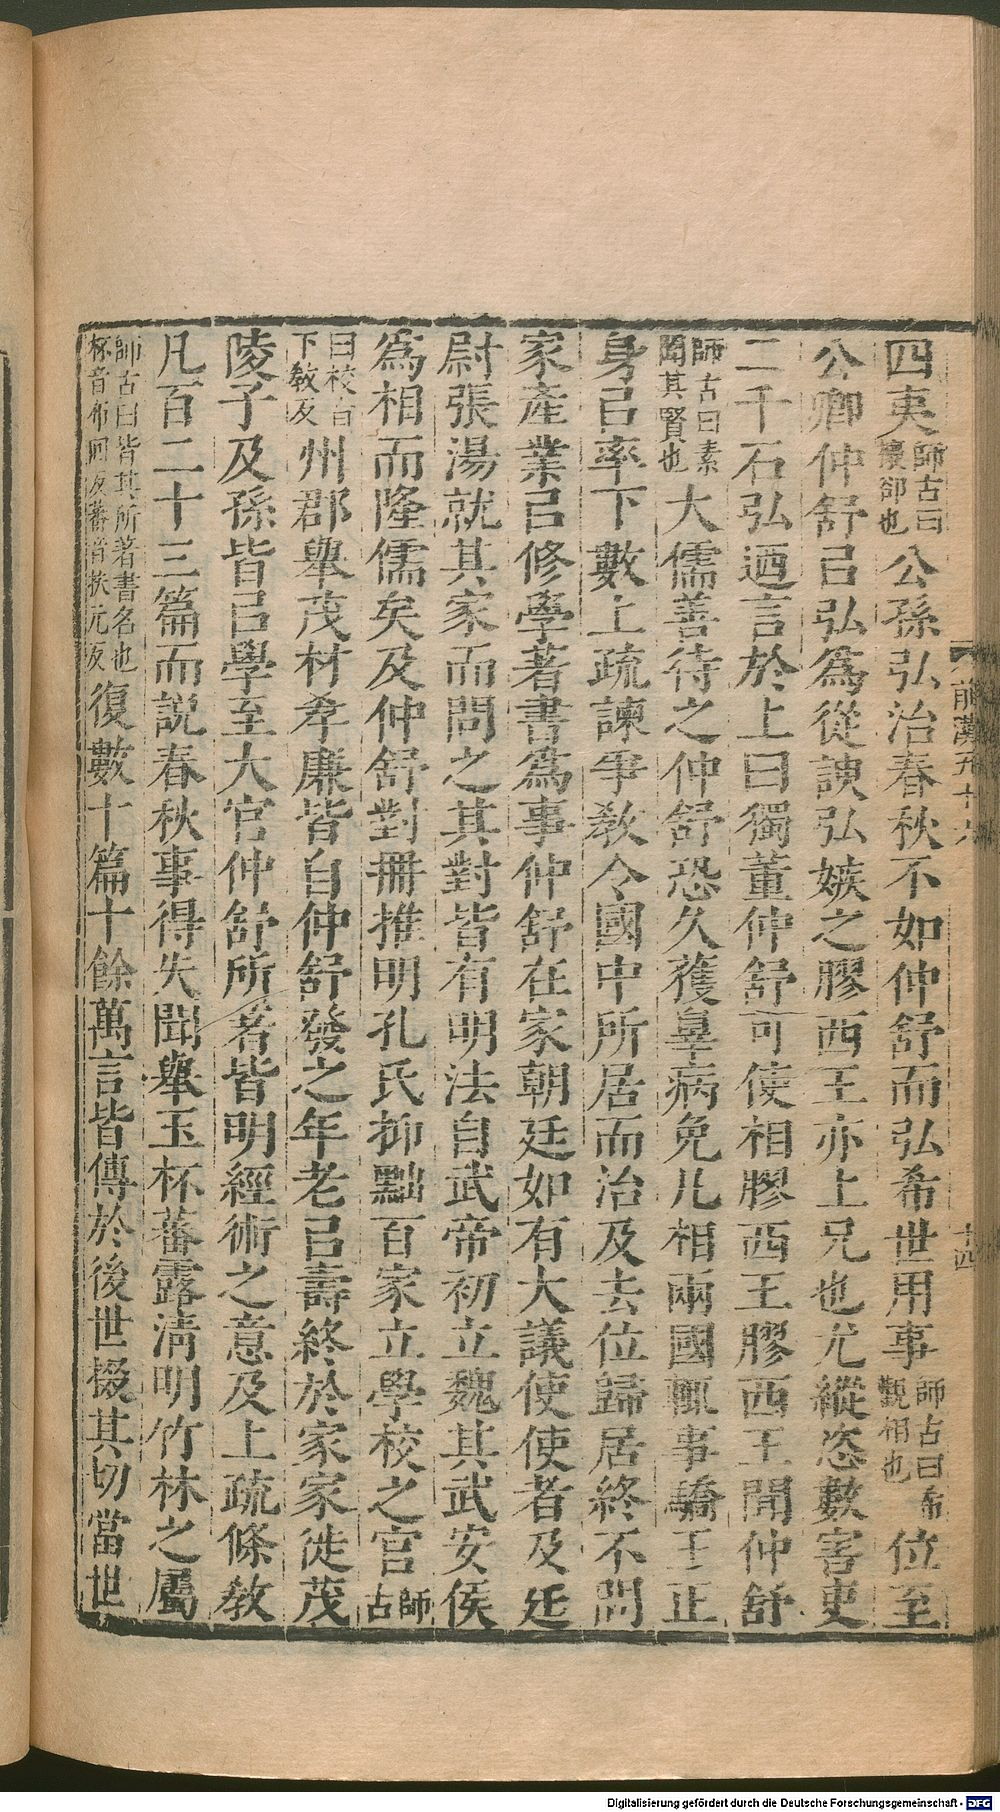 四夷師古曰攘卻也公孫弘治春秋不如仲舒而弘希世用事師古曰希觀相也位至
公卿仲舒㠯弘爲從諛弘嫉之膠西王亦上兄也尤縱恣數害吏
二千石弘迺言於上曰獨董仲舒可使相膠西王膠西王聞仲舒
大儒善待之仲舒恐久獲辠病免凡相兩國輒事驕王正
師古曰素聞其賢也
身㠯率下數上疏諫爭敎令國中所居而治及去位歸居終不問
家產業㠯修學著書爲事仲舒在家朝廷如有大議使使者及廷
尉張湯就其家而問之其對皆有明法自武帝初立魏其武安侯
爲相而隆儒矣及仲舒對冊推明孔氏抑黜百家立學校之官師古
曰校音下敎反州郡舉茂材孝廉皆自仲舒發之年老㠯壽終於家家徙茂
陵子及孫皆㠯學至大官仲舒所著皆明經術之意及上疏條敎
凡百二十三篇而說春秋事得失聞舉玉杯蕃露淸明竹林之屬
師古曰皆其所著書名也杯音布回反蕃音扶元反復數十篇十餘萬言皆傳於後世掇其切當世
前漢五十六
十四
Digitalisierung gefördert durch die Deutsche Forschungsgemeinschaft - DFG